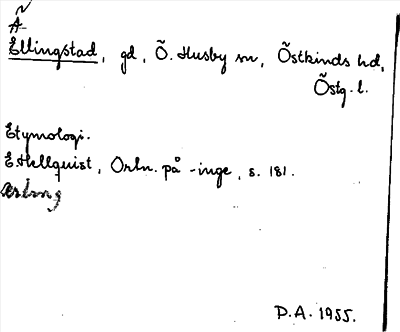 Ellingstad, gd, Ö. Husby sn, Östkinds hd,
Östg. l.
Etymologi.
E. Hellquist, Ortn. på -inge, s. 181.
P.A. 1955.